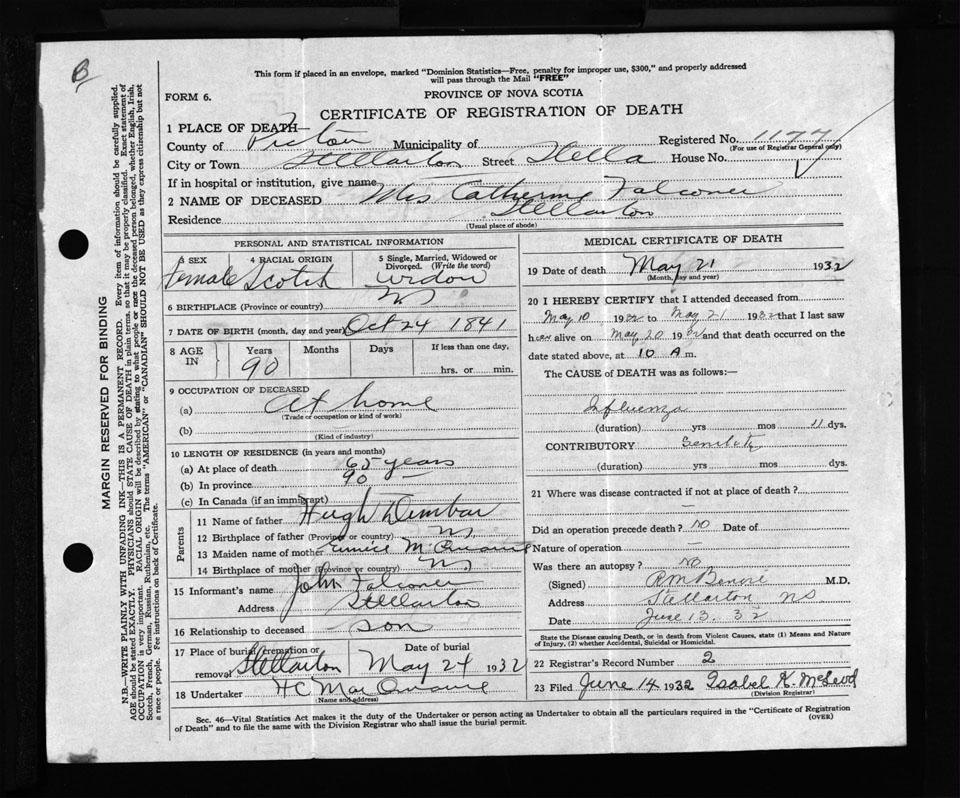 This form if placed in an envelope, marked "Dominion Statistics—Free, penalty for improper use, $300," and properly addressed
will pass through the Mail "FREE"
FORM 6.
PROVINCE OF NOVA SCOTIA
CERTIFICATE OF REGISTRATION OF DEATH
1 PLACE OF DEATH—
County of Pictou Municipality of Registered No. 1177
(For use of Registrar General only)
City or Town Stellarton Street Stella House No.
If in hospital or institution, give name
2 NAME OF DECEASED Mrs Catherine Falconer
Residence Stellarton
(Usual place of abode)
PERSONAL AND STATISTICAL INFORMATION
3 SEX 4 RACIAL ORIGIN 5 Single, Married, Widowed or Divorced. (Write the word)
Female Scotch widow
6 BIRTHPLACE (Province or country) NS
7 DATE OF BIRTH (month, day and year) Oct 24 1841
8 AGE IN Years Months Days If less than one day,
90 hrs. or min.
9 OCCUPATION OF DECEASED
(a) At home
(Trade or occupation or kind of work)
(b)
(Kind of industry)
10 LENGTH OF RESIDENCE (in years and months)
(a) At place of death 65 years
(b) In province 90 —
(c) In Canada (if an immigrant)
Parents
11 Name of father Hugh Dunbar
12 Birthplace of father (Province or country) NS
13 Maiden name of mother Eunice
14 Birthplace of mother (Province or country) NS
15 Informant's name John Falconer
Address Stellarton
16 Relationship to deceased son
17 Place of burial, cremation or removal Stellarton Date of burial May 24 1932
18 Undertaker H C
(Name and address)
MEDICAL CERTIFICATE OF DEATH
19 Date of death May 21 1932
(Month, day and year)
20 I HEREBY CERTIFY that I attended deceased from
May 10 1932 to May 21 1932 that I last saw
her alive on May 20 1932 and that death occurred on the
date stated above, at 10 A m.
The CAUSE of DEATH was as follows:—
Influenza
(duration) yrs mos 11 dys.
CONTRIBUTORY Senility
(duration) yrs mos dys.
21 Where was disease contracted if not at place of death?
—
Did an operation precede death? NO Date of
Nature of operation —
Was there an autopsy? NO
(Signed) R M M.D.
Address Stellarton NS
Date June 13. 32
State the Disease causing Death, or in death from Violent Causes, state (1) Means and Nature
of Injury, (2) whether Accidental, Suicidal or Homicidal.
22 Registrar's Record Number 2
23 Filed June 14 1932 Isabel K. McLeod
(Division Registrar)
Sec. 46—Vital Statistics Act makes it the duty of the Undertaker or person acting as Undertaker to obtain all the particulars required in the "Certificate of Registration
of Death" and to file the same with the Division Registrar who shall issue the burial permit.
(OVER)
MARGIN RESERVED FOR BINDING
N.B.—WRITE PLAINLY WITH UNFADING INK—THIS IS A PERMANENT RECORD. Every item of information should be carefully supplied.
AGE should be stated EXACTLY. PHYSICIANS should STATE CAUSE OF DEATH in plain terms, so that it may be properly classified. Exact statement of
OCCUPATION is very important. RACIAL ORIGIN will be described by stating to what people or race the deceased person belonged, whether English, Irish,
Scotch, French, German, Russian, Ruthenian, etc. The terms "AMERICAN" or "CANADIAN" SHOULD NOT BE USED as they express citizenship but not
a race or people. Fee instructions on back of Certificate.